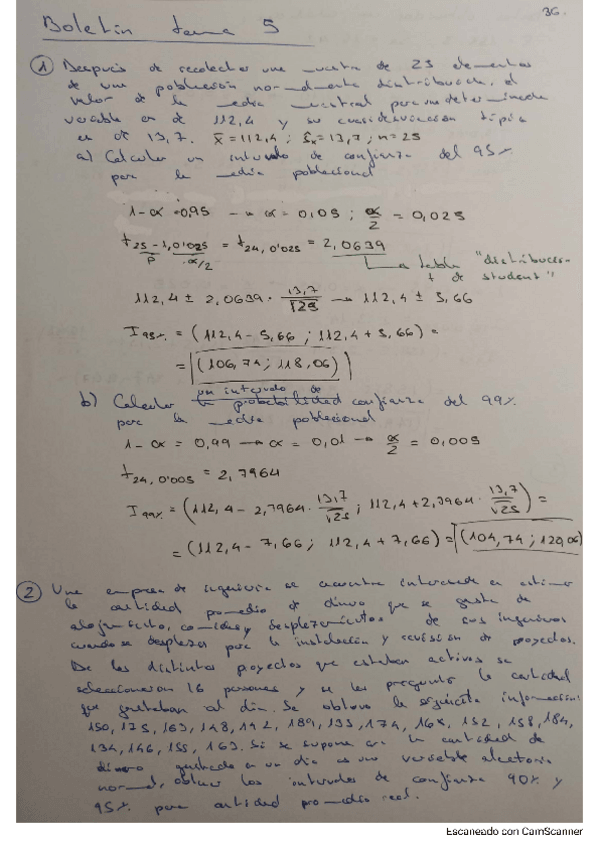 36.
Boletín tema 5
① Después de recolectar una muestra de 25 elementos
de una población normalmente distribuida, el
valor de la media muestral para una determinada
variable es de 112,4 y su cuasidesviación típica
es de 13,7. x̄ = 112,4 ; ŝx = 13,7 ; n = 25
a) Calcular un intervalo de confianza del 95%
para la media poblacional
1-α = 0,95 → α = 0,05 ; α/2 = 0,025
t25-1, 0'025 = t24, 0'025 = 2,0639
α/2
→ a tabla "distribuces
t de student"
112,4 ± 2,0639 · 13,7/√25 → 112,4 ± 5,66
I95% = (112,4 - 5,66 ; 112,4 + 5,66) =
= (106,74 ; 118,06)
un intervalo de
b) Calcular la probabilidad confianza del 99%
para la media poblacional
1-α = 0,99 → α = 0,01 → α/2 = 0,005
t24, 0'005 = 2,7964
I99% = (112,4 - 2,7964 · 13,7/√25 ; 112,4 + 2,7964 · 13,7/√25) =
= (112,4 - 7,66 ; 112,4 + 7,66) = (104,74 ; 120,06)
② Una empresa de ingeniería se encuentra interesada en estimar
la cantidad promedio de dinero que se gasta de
alojamiento, comidas y desplazamientos de sus ingenieros
cuando se desplazan para la instalación y revisión de proyectos.
De los distintos proyectos que estaban activos se
seleccionaron 16 personas y se les preguntó la cantidad
que gastaban al día. Se obtuvo la siguiente información:
150, 175, 163, 148, 142, 189, 135, 174, 168, 152, 158, 184,
134, 146, 155, 163. Si se supone que la cantidad de
dinero gastada en un día es una variable aleatoria
normal, obtener los intervalos de confianza 90% y
95% para cantidad promedio real.
Escaneado con CamScanner